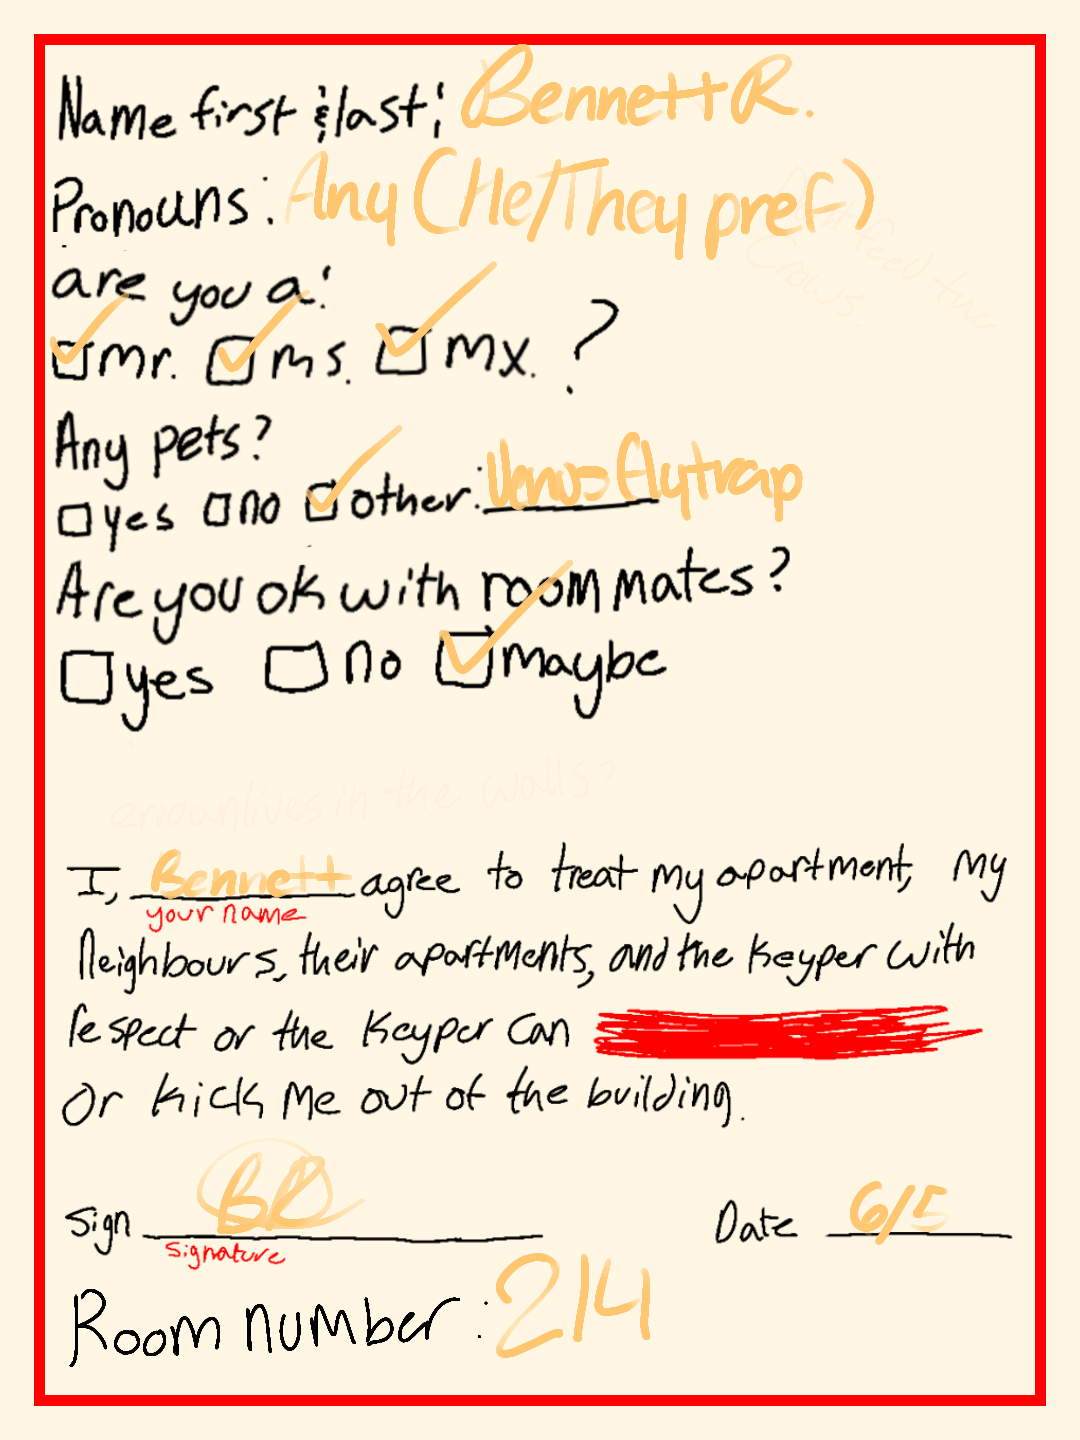 Name first & last: Bennett R.
Pronouns: Any (He/They pref)
feed the
Crows.
are you a:
mr. ms. mx. ?
Any pets?
yes no other: Venus flytrap
Are you ok with roommates?
yes no maybe
lives in the walls?
I, Bennett agree to treat my apartment, my
your name
Neighbours, their apartments, and the Keyper with
respect or the Keyper can
Or kick me out of the building.
Sign BR Date 6/5
signature
Room number: 214